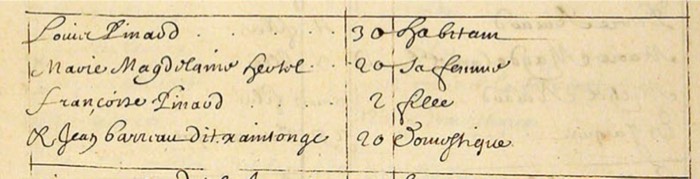 Louis Pinard . . . . . 30 habitant
Marie Magdelaine hertel 20 sa femme
françoise Pinard . . . . 2 fille
& Jean barreau dit xaintonge 20 Domestique